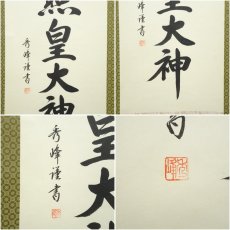 照皇大神
秀峰謹書
皇大神
謹書
皇大
秀峰謹書